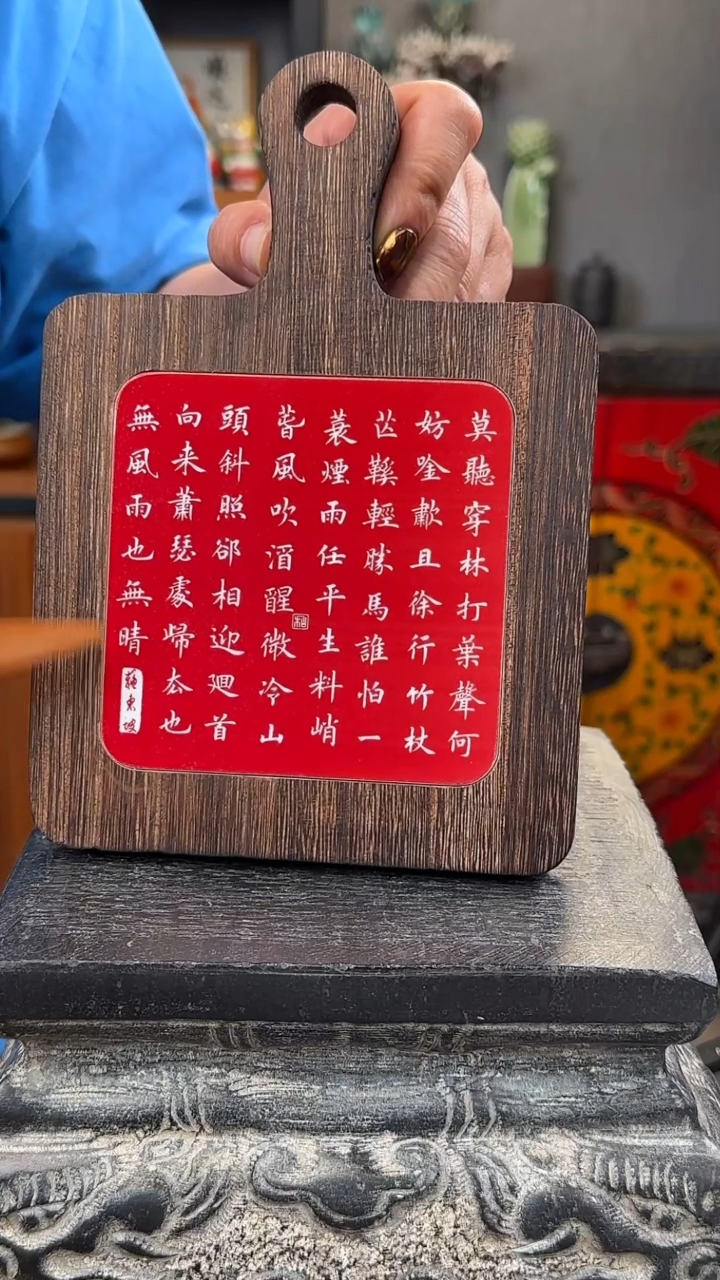 莫聽穿林打葉聲何
妨唫歗且徐行竹杖
芒鞵輕勝馬誰怕一
蓑煙雨任平生料峭
萅風吹酒醒微冷山
頭斜照郤相迎廻首
向来蕭瑟處歸厺也
無風雨也無晴
蘇東坡